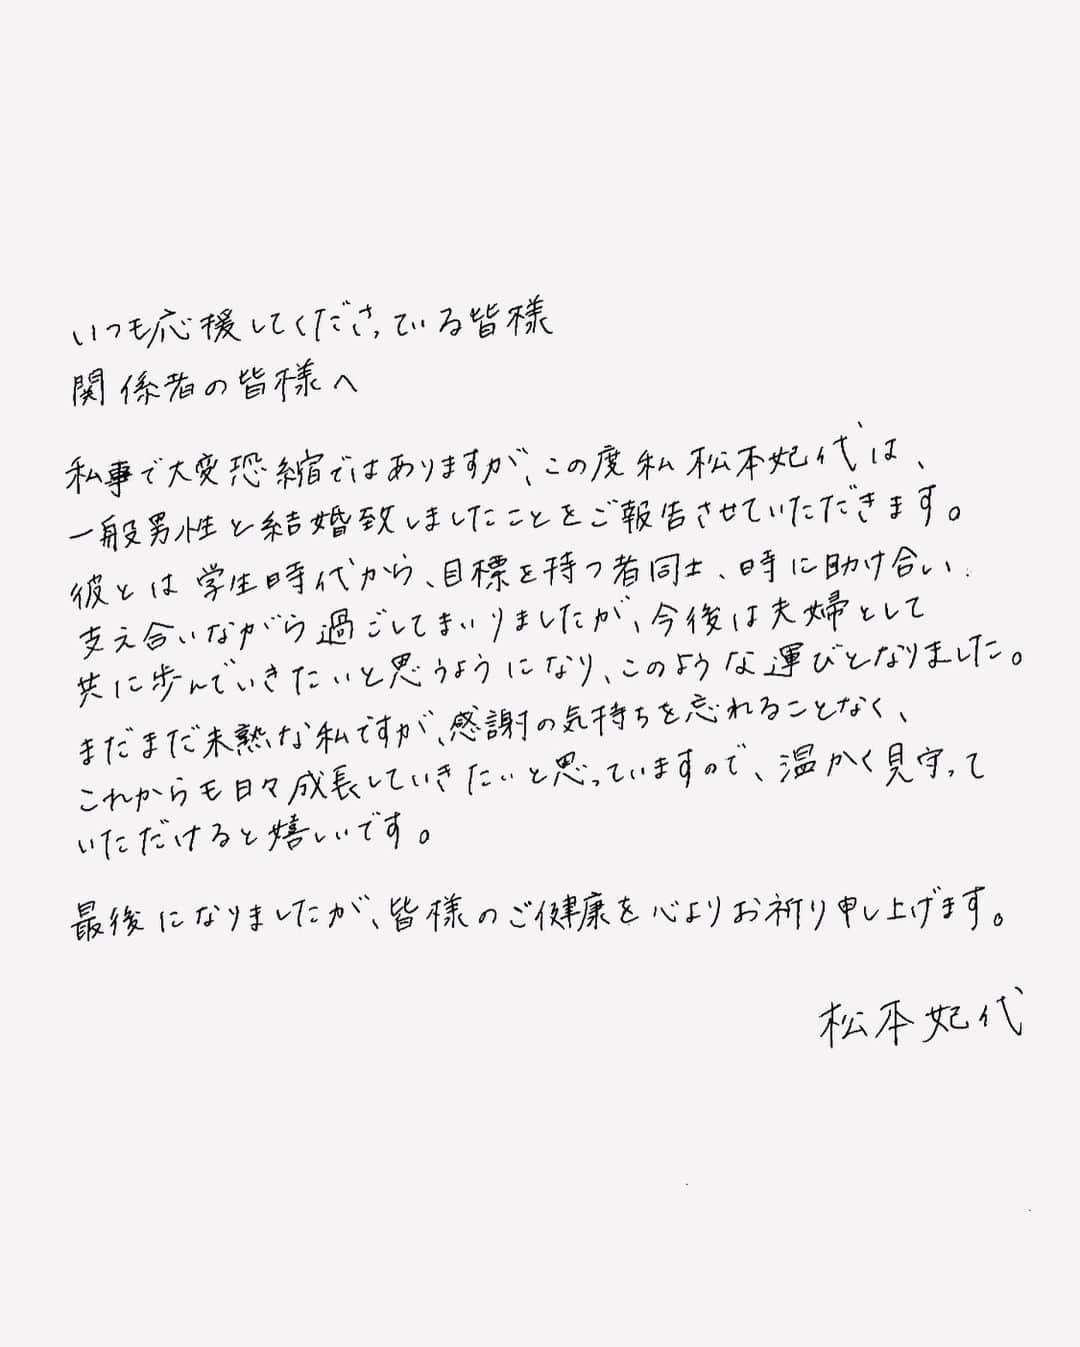 いつも応援してくださっている皆様
関係者の皆様へ
私事で大変恐縮ではありますが、この度私 松本妃代は、
一般男性と結婚致しましたことをご報告させていただきます。
彼とは学生時代から、目標を持つ者同士、時に助け合い
支え合いながら過ごしてまいりましたが、今後は夫婦として
共に歩んでいきたいと思うようになり、このような運びとなりました。
まだまだ未熟な私ですが、感謝の気持ちを忘れることなく、
これからも日々成長していきたいと思っていますので、温かく見守って
いただけると嬉しいです。
最後になりましたが、皆様のご健康を心よりお祈り申し上げます。
松本妃代